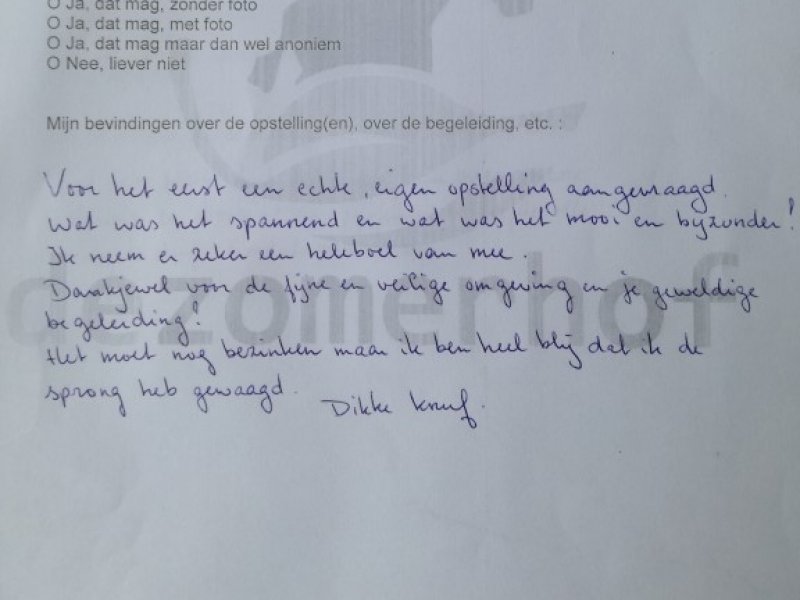 O Ja, dat mag, zonder foto
O Ja, dat mag, met foto
O Ja, dat mag maar dan wel anoniem
O Nee, liever niet
Mijn bevindingen over de opstelling(en), over de begeleiding, etc. :
Voor het eerst een echte, eigen opstelling aangevraagd.
Wat was het spannend en wat was het mooi en bijzonder!
Ik neem er zeker een heleboel van mee.
Dankjewel voor de fijne en veilige omgeving en je geweldige
begeleiding!
Het moet nog bezinken maar ik ben heel blij dat ik de
sprong heb gewaagd.
Dikke knuf.
dezomerhof